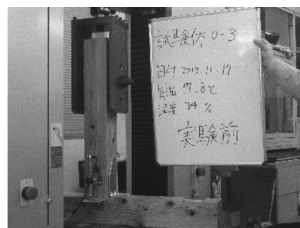 試験体 U-3
日付 2017.11.17
気温 17.8℃
湿度 34 %
実験前